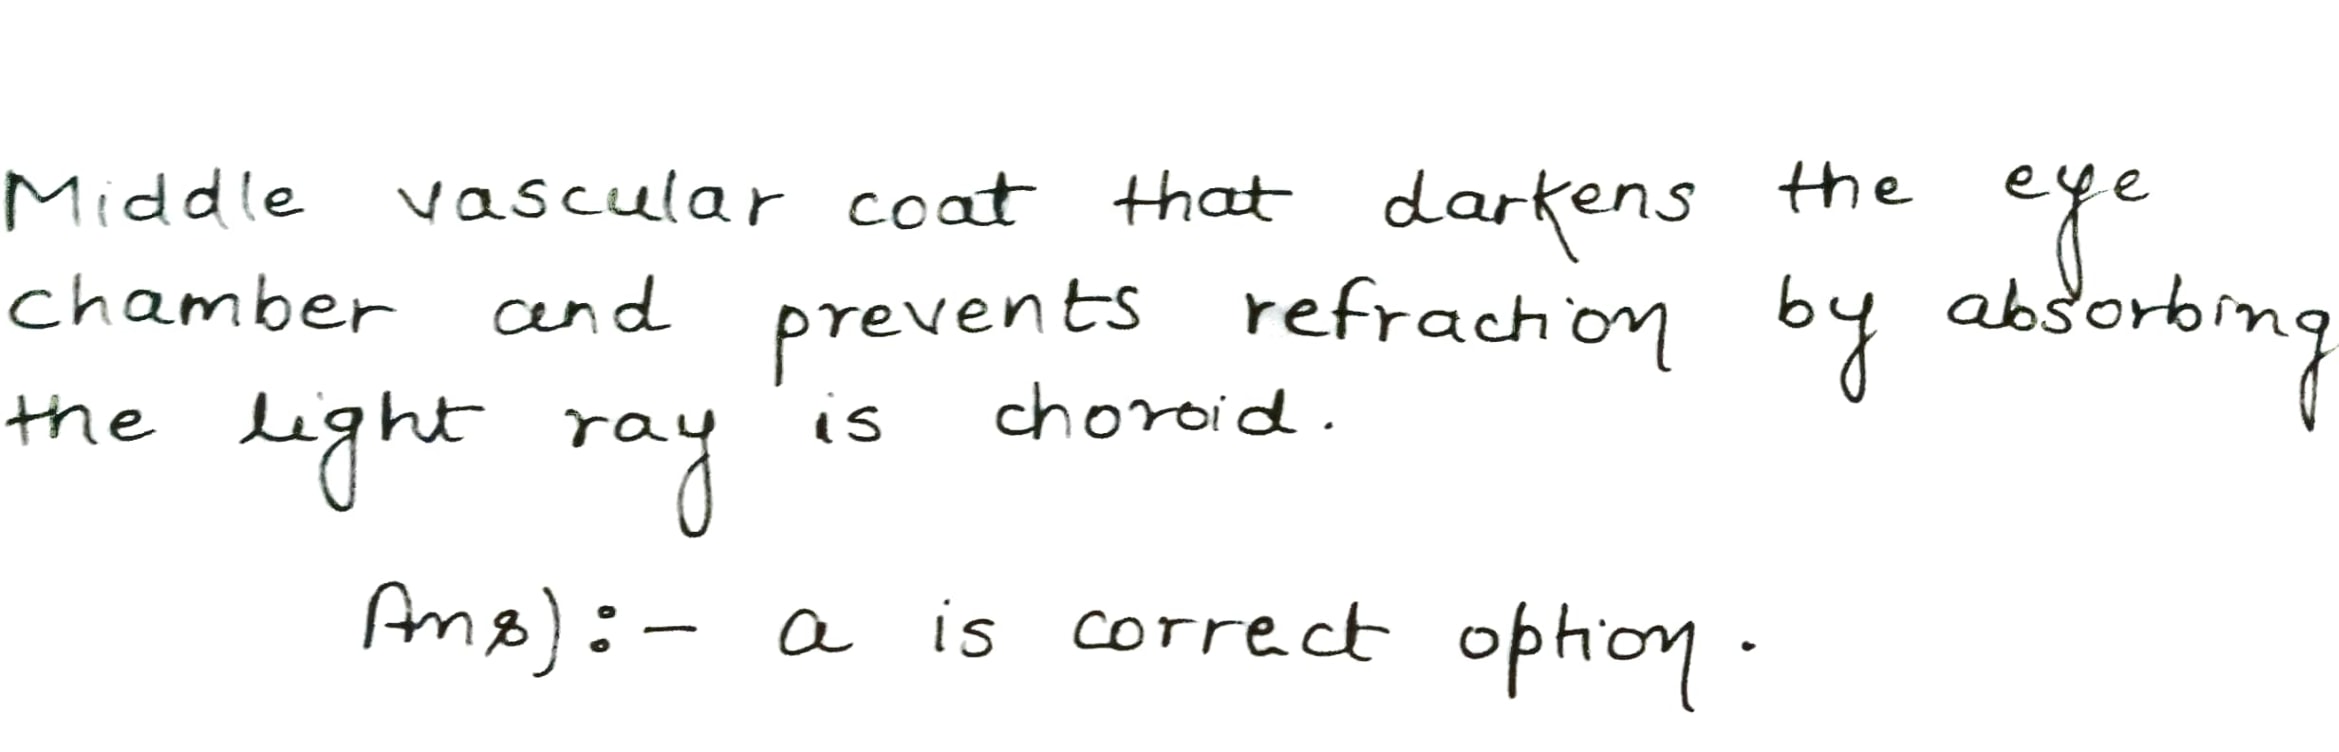 Middle vascular coat that darkens the eye
chamber and prevents refraction by absorbing
the light ray is choroid.
Ans):- a is correct option.